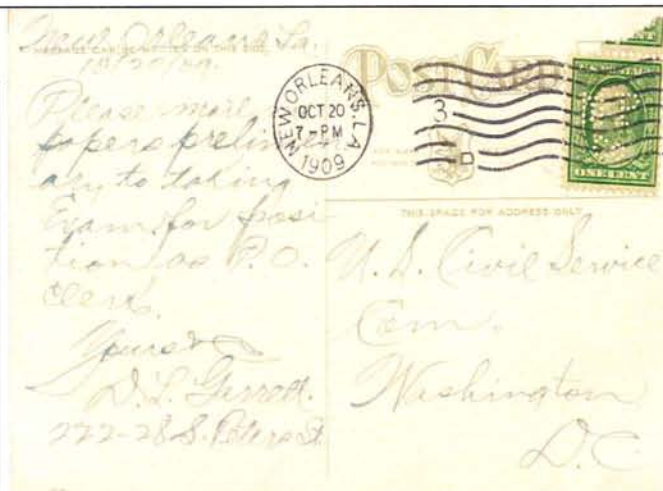 New Orleans La.
MESSAGE CAN BE WRITTEN ON THIS SIDE
10/20/09.
Please mail
papers prelimin
ary to taking
Exam for posi
tion as P.O.
Clerk.
Yours
D. L.
222-28 S. Peters St.
POST CARD
NEW ORLEANS, LA
OCT 20
7-PM
1909
3
D
ONE CENT
THIS SPACE FOR ADDRESS ONLY
U. S. Civil Service
Com.
Washington
D.C.